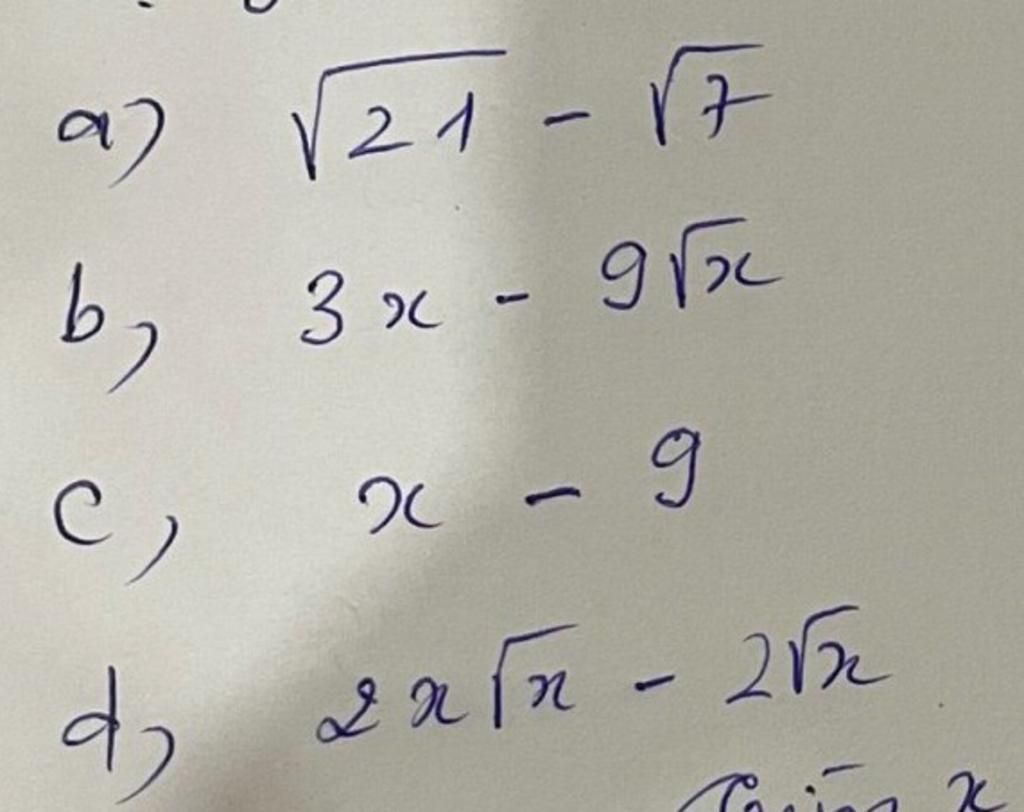 a) √21 - √7
b, 3x - 9√x
c, x - 9
d, 2x√x - 2√x
x